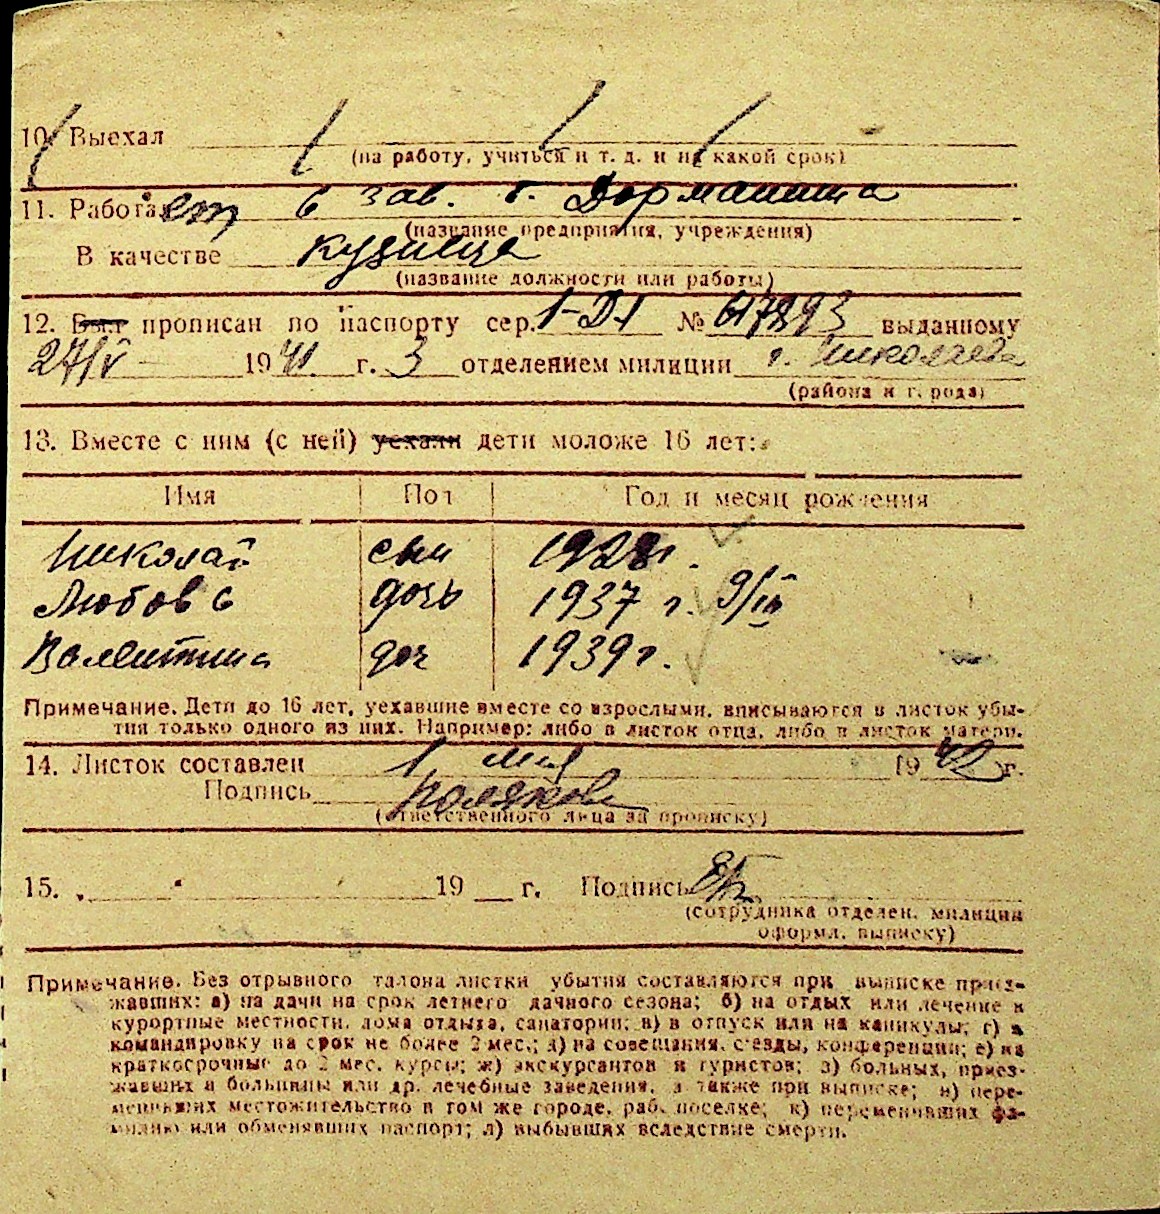 10. Выехал
(на работу, учиться и т. д. и на какой срок)
11. Работает в зав. г. Дормашина
(название предприятия, учреждения)
В качестве кузнеца
(название должности или работы)
12. Был прописан по паспорту сер. 1-DI № 617893 выданному
27/V 1941 г. 3 отделением милиции г. Николаева
(района и города)
13. Вместе с ним (с ней) уехали дети моложе 16 лет:
Имя Пол Год и месяц рождения
Николай сын 1928 г.
Любовь дочь 1937 г. 9/III
Валентина доч 1939 г.
Примечание. Дети до 16 лет, уехавшие вместе со взрослыми, вписываются в листок убы-
тия только одного из них. Например: либо в листок отца, либо в листок матери.
14. Листок составлен 1 мая 1942 г.
Подпись Полякова
(ответственного лица за прописку)
15. 19 г. Подпись
(сотрудника отделен. милиции
оформл. выписку)
Примечание. Без отрывного талона листки убытия составляются при выписке приез-
жавших: а) на дачи на срок летнего дачного сезона; б) на отдых или лечение в
курортные местности, дома отдыха, санатории; в) в отпуск или на каникулы; г) в
командировку на срок не более 2 мес.; д) на совещания, с'езды, конференции; е) на
краткосрочные до 2 мес. курсы; ж) экскурсантов и туристов; з) больных, приез-
жавших в больницы или др. лечебные заведения, а также при выписке; и) пере-
менивших местожительство в том же городе, раб. поселке; к) переменивших фа-
милию или обменявших паспорт; л) выбывших вследствие смерти.